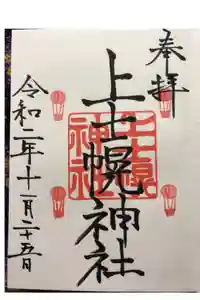 奉拝
上士幌神社
上士幌
神社
令和二年十一月二十五日